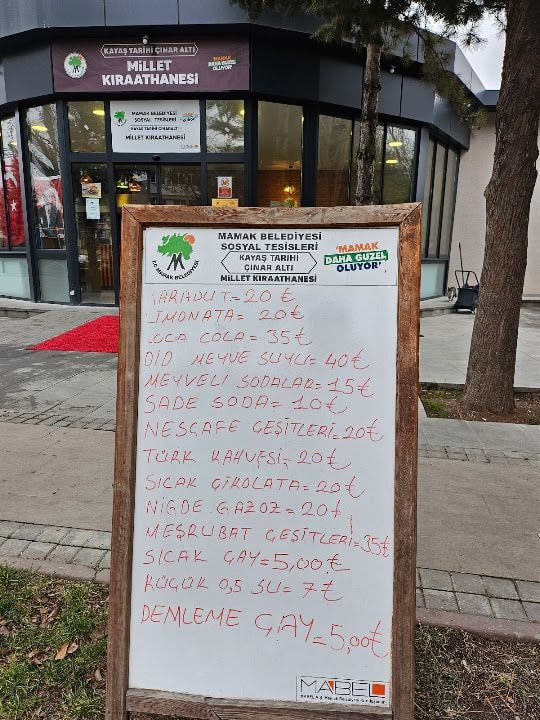 KAYAŞ TARİHİ ÇINAR ALTI
MİLLET
KIRAATHANESİ
MAMAK
DAHA GÜZEL
OLUYOR
MAMAK BELEDİYESİ
SOSYAL TESİSLERİ
KAYAŞ TARİHİ ÇINARALTI
MİLLET KIRAATHANESİ
MAMAK BELEDİYESİ
SOSYAL TESİSLERİ
KAYAŞ TARİHİ
ÇINAR ALTI
MİLLET KIRAATHANESİ
T.C. MAMAK BELEDİYESİ
'MAMAK
DAHA GÜZEL
OLUYOR'
KARADUT=20 ₺
LİMONATA=20₺
COCA COLA=35₺
DİD MEYVE SUYU=40₺
MEYVELİ SODALAR=15₺
SADE SODA=10₺
NESCAFE ÇEŞİTLERİ=20₺
TÜRK KAHVESİ=20₺
SICAK ÇİKOLATA=20₺
NİĞDE GAZOZ=20₺
MEŞRUBAT ÇEŞİTLERİ=35₺
SICAK ÇAY=5,00₺
KÜÇÜK 0,5 SU=7₺
DEMLEME ÇAY=5,00₺
MABEL